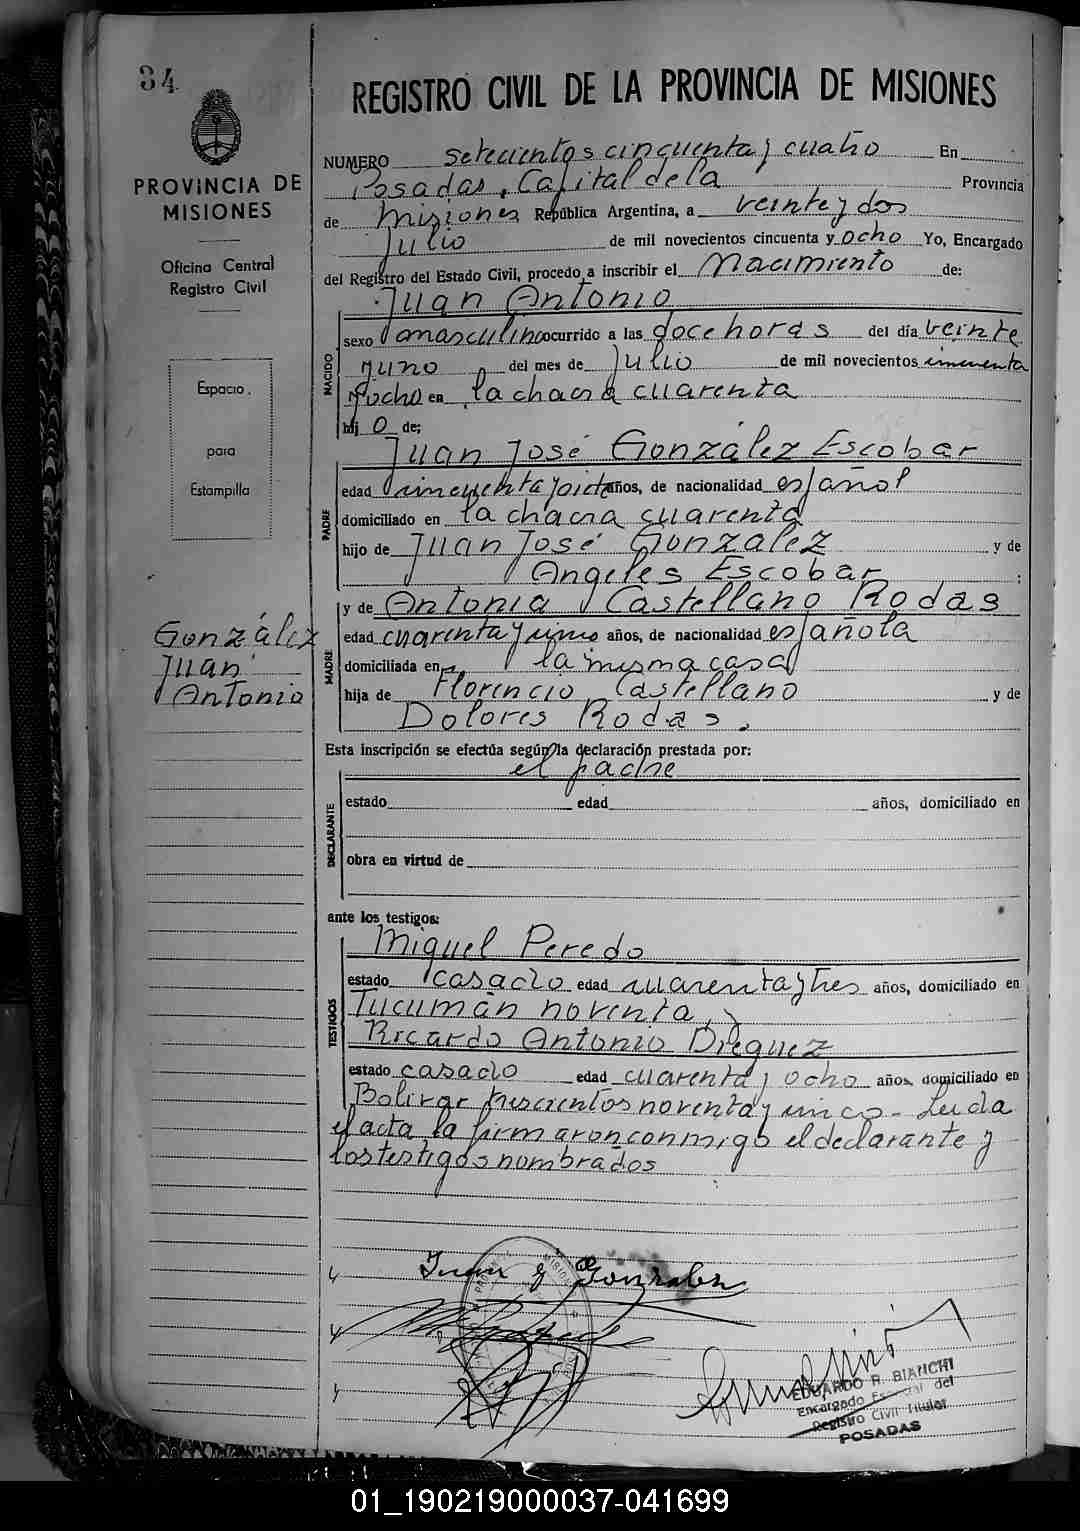 34
PROVINCIA DE
MISIONES
Oficina Central
Registro Civil
Espacio
para
Estampilla
González
Juan
Antonio
REGISTRO CIVIL DE LA PROVINCIA DE MISIONES
NUMERO setecientos cincuenta y cuatro En
Posadas, Capital de la Provincia
de Misiones República Argentina, a veinte y dos
Julio de mil novecientos cincuenta y ocho Yo, Encargado
del Registro del Estado Civil, procedo a inscribir el Nacimiento de:
Juan Antonio
NACIDO
sexo masculino ocurrido a las doce horas del día veinte
y uno del mes de Julio de mil novecientos cincuenta
y ocho en la chacra cuarenta
hijo de;
Juan José González Escobar
PADRE
edad cincuenta y siete años, de nacionalidad español
domiciliado en la chacra cuarenta
hijo de Juan José González y de
Angeles Escobar ;
y de Antonia Castellano Rodas
MADRE
edad cuarenta y uno años, de nacionalidad española
domiciliada en la misma casa
hija de Florencio Castellano y de
Dolores Rodas.
Esta inscripción se efectúa según la declaración prestada por:
el padre
DECLARANTE
estado edad años, domiciliado en
obra en virtud de
ante los testigos:
Miguel Peredo
TESTIGOS
estado casado edad cuarenta y tres años, domiciliado en
Tucumán noventa, y
Ricardo Antonio Dieguez
estado casado edad cuarenta y ocho años domiciliado en
Bolivar trescientos noventa y cinco - Leida
el acta la firmaron conmigo el declarante y
los testigos nombrados
Juan J Gonzalez
EDUARDO R. BIANCHI
Encargado del
Registro Civil Titular
POSADAS
01_190219000037-041699